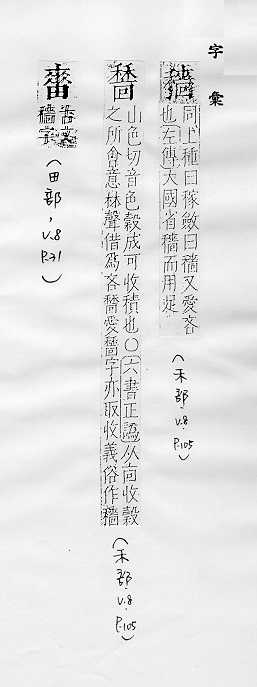 字彙
穡
同上種曰稼斂曰穡又愛吝
也左傳大國省穡而用足
(禾部, v.8. P.105)
山色切音色穀成可收積也〇六書正譌从㐭收穀
之所會意 聲借爲吝嗇愛嗇字亦取收義俗作穡
(禾部. v.8. P.105)
古文
穡字
(田部, v.8 P.31)